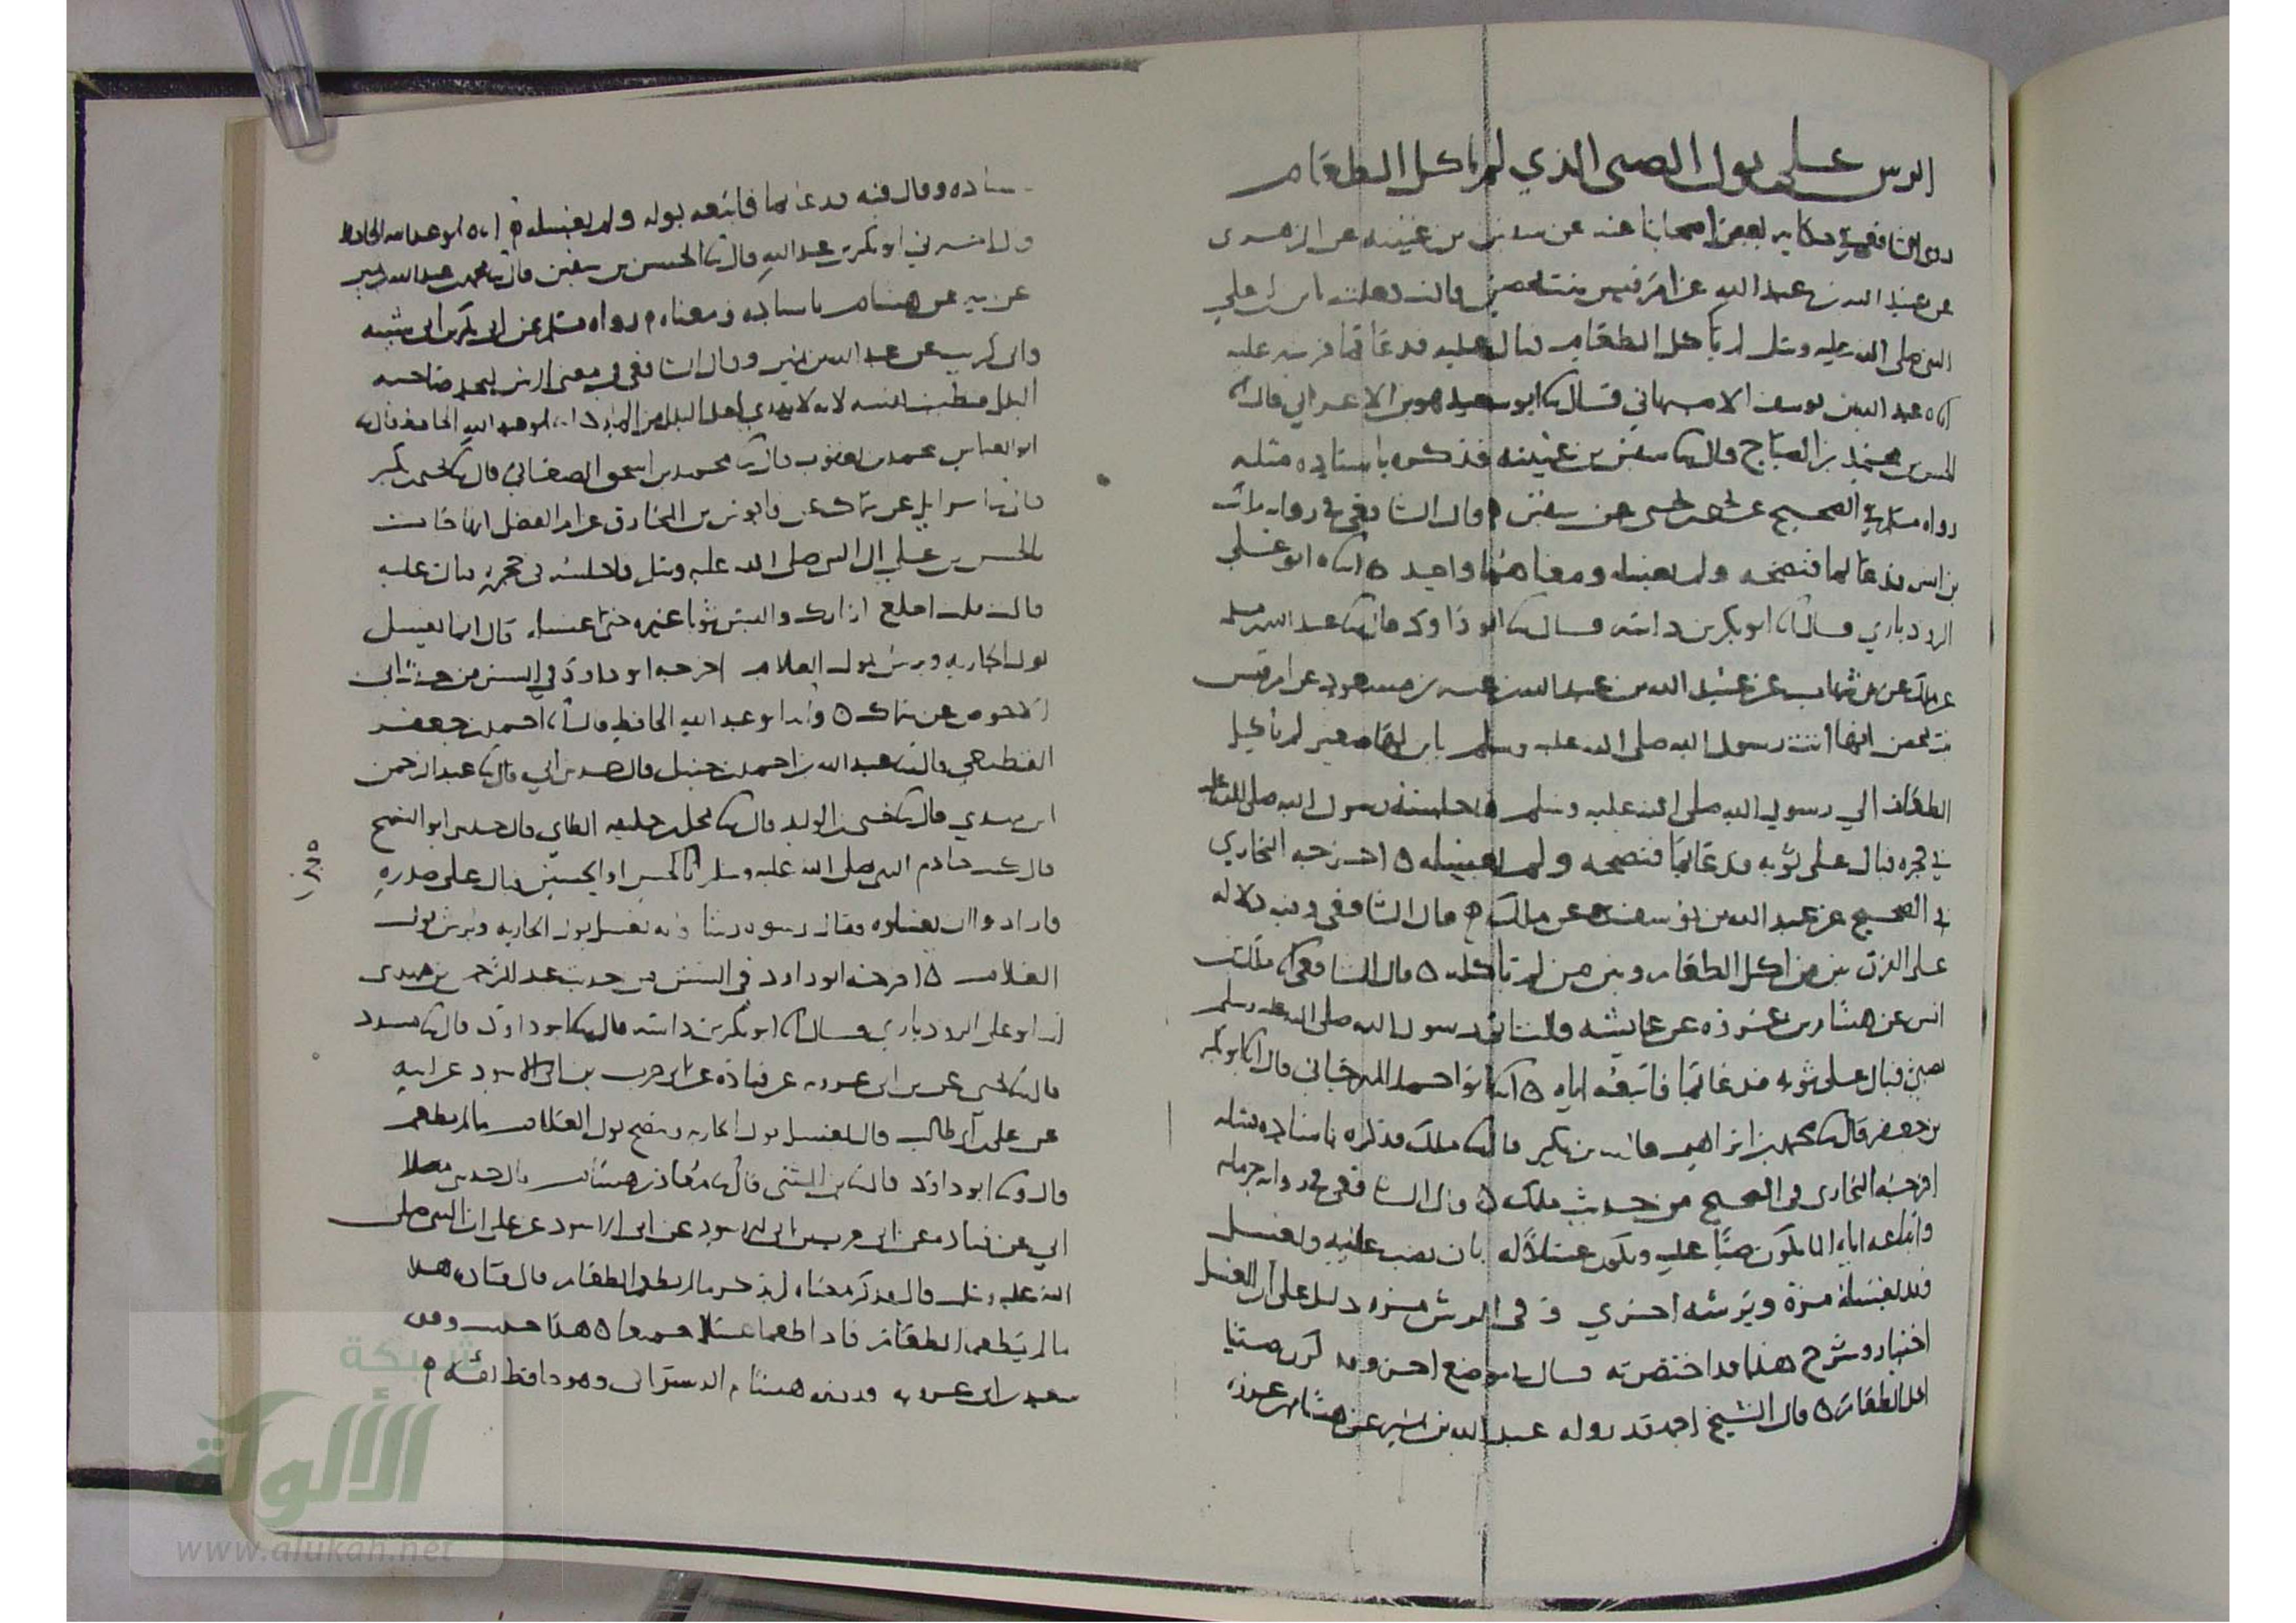 الرش على بول الصبى الذي لم ياكل الطعام
روى الشافعي في حكاية بعض اصحابنا عنه عن سفين بن عيينه عن الزهرى
عن عبيد الله بن عبد الله عن ام قيس بنت محصن قالت دخلت بابن لي علي
النبي صلى الله عليه وسلم لم ياكل الطعام فبال عليه فدعا بما فرشه عليه
عبد الله بن يوسف الاصبهاني قال ابو سعيد هو بن الاعرابي قال
الحسن بن محمد بن الصباح قال سفين بن عيينه فذكره باسناده مثله
رواه مسلم في الصحيح عن يحيى بن يحيى عن سفين قال الشافعي في روايه مالك
بن انس فدعا بما فنضحه ولم يغسله ومعناهما واحد ابو علي
الروذباري قال ابو بكر بن داسه قال ابو داود قال عبد الله بن مسلمه
عن مالك عن بن شهاب عن عبيد الله بن عبد الله بن عتبه بن مسعود عن ام قيس
بنت محصن انها اتت رسول الله صلى الله عليه وسلم بابن لها صغير لم ياكل
الطعام الي رسول الله صلى الله عليه وسلم فاجلسه رسول الله صلى الله عليه
في حجره فبال على ثوبه فدعا بما فنضحه ولم يغسله اخرجه البخاري
في الصحيح عن عبد الله بن يوسف عن مالك قال الشافعي وفيه دلاله
على الفرق بين من اكل الطعام وبين من لم ياكله قال الشافعي مالك بن
انس عن هشام بن عروه عن عايشه قالت اتى رسول الله صلى الله عليه وسلم
بصبي فبال على ثوبه فدعا بما فاتبعه اياه ابو احمد المهرجاني قال ابو بكر
بن جعفر قال محمد بن ابراهيم قال بن بكير قال ملك فذكره باسناده مثله
اخرجه البخارى فى الصحيح من حديث ملك قال الشافعي في روايه حرمله
واتباعه اياه الما يكون صبًا عليه ويكون غسلاً له بان يصب عليه ولغسل
فقد يغسله مرة ويرشه اخري وفى الرش مره دليل على ان الغسل
اختيار وشرح هذا قد اختصرته في موضع اخر
اكل الطعام قال الشيخ احمد قد رواه عبد الله بن نمير عن هشام بن عروه
باسناده وقال فيه فدعا بما فاتبعه بوله ولم يغسله ابو عبد الله الحافظ
ابو بكر بن عبد الله قال الحسن بن سفين قال محمد بن عبد الله بن نمير
عن هشام باسناده ومعناه رواه مسلم عن ابي بكر بن ابى شيبه
وابى كريب عن عبد الله بن نمير وقال الشافعي في معنى الرش
ابو عبد الله الحافظ قال
ابو العباس محمد بن يعقوب قال محمد بن اسحق الصغاني قال يحيى بن بكير
قال اسرايل عن سماك عن قابوس بن المخارق عن ام الفضل انها جات
بالحسن بن علي الى النبي صلى الله عليه وسلم فاجلسه فى حجره فبال عليه
قالت قلت اخلع ازارك والبس ثوبا غيره حتى اغسله قال انما يغسل
بول الجاريه ويرش بول الغلام اخرجه ابو داود في السنن من حديث ابي
الاحوص عن سماك ابو عبد الله الحافظ قال احمد بن جعفر
القطيعي قال عبد الله بن احمد بن حنبل قال حدثني ابي قال عبد الرحمن
ابن مهدي قال يحيى بن الوليد قال محل بن خليفه الطاي قال حدثني ابو السمح
قال كنت خادم النبي صلى الله عليه وسلم بالحسن او الحسين فبال على صدره
فارادوا ان يغسلوه فقال رسوه رشا فانه يغسل بول الجاريه ويرش بول
الغلام اخرجه ابو داود فى السنن من حديث عبد الرحمن بن مهدى
ابو على الروذباري قال ابو بكر بن داسه قال ابو داود قال مسدد
قال يحيى عن بن ابى عروبه عن قتاده عن ابى حرب بن ابي الاسود عن ابيه
عن علي بن ابي طالب قال يغسل بول الجاريه وينضح بول الغلام ما لم يطعم
قال ابو داود قال بن المثنى قال معاذ بن هشام قال حدثني
ابي عن قتاده عن ابى حرب بن ابى الاسود عن ابى الاسود عن على ان النبى صلى
الله عليه وسلم قال فذكر معناه لم يذكر ما لم يطعم الطعام قال قتاده هذا
ما لم يطعما الطعام فاذا طعما غسلا جميعا هذا حديث
سعيد بن ابى عروبه هشام الدستوائى وهو حافظ ثقه
شبكة
الألوكة
www.alukah.net